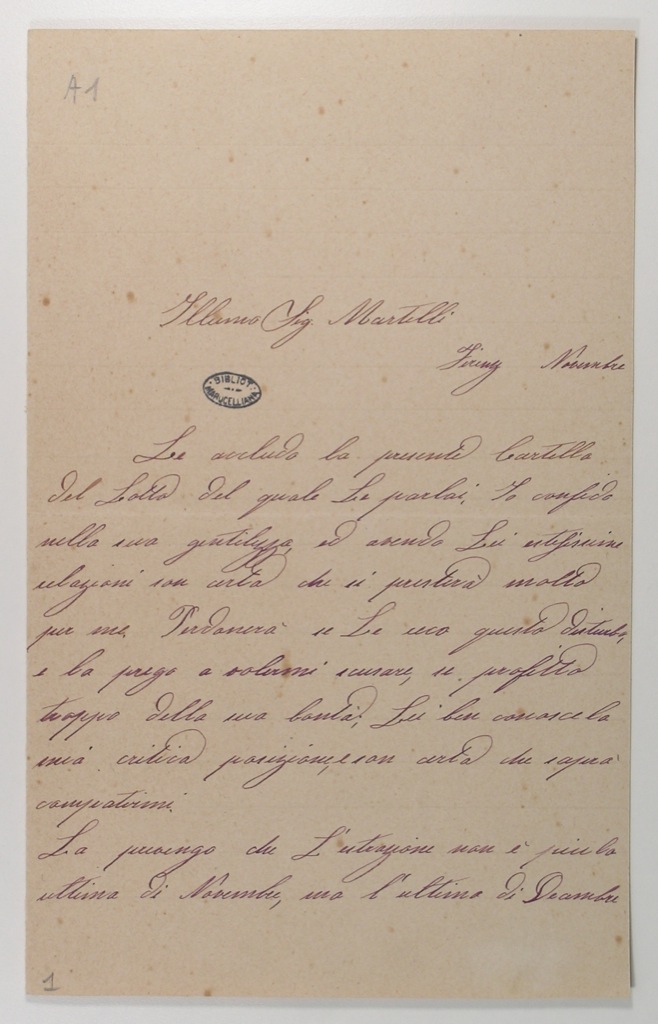 A1
Illamo Sig. Martelli
Firenze Novembre
BIBLIOT.
MARUCELLIANA
Le accludo la presente Cartella
del Lotto del quale Le parlai. Io confido
nella sua gentilezza, ed avendo Lei estesissime
relazioni son certa che si presterà molto
per me. Perdonerà se Le reco questo disturbo,
e la prego a volermi scusare, se profitto
troppo della sua bontà, Lei ben conosce la
mia critica posizione, e son certa che saprà
compatirmi.
La prevengo che L'estrazione non è più la
ultima di Novembre, ma l'ultima di Decembre
1